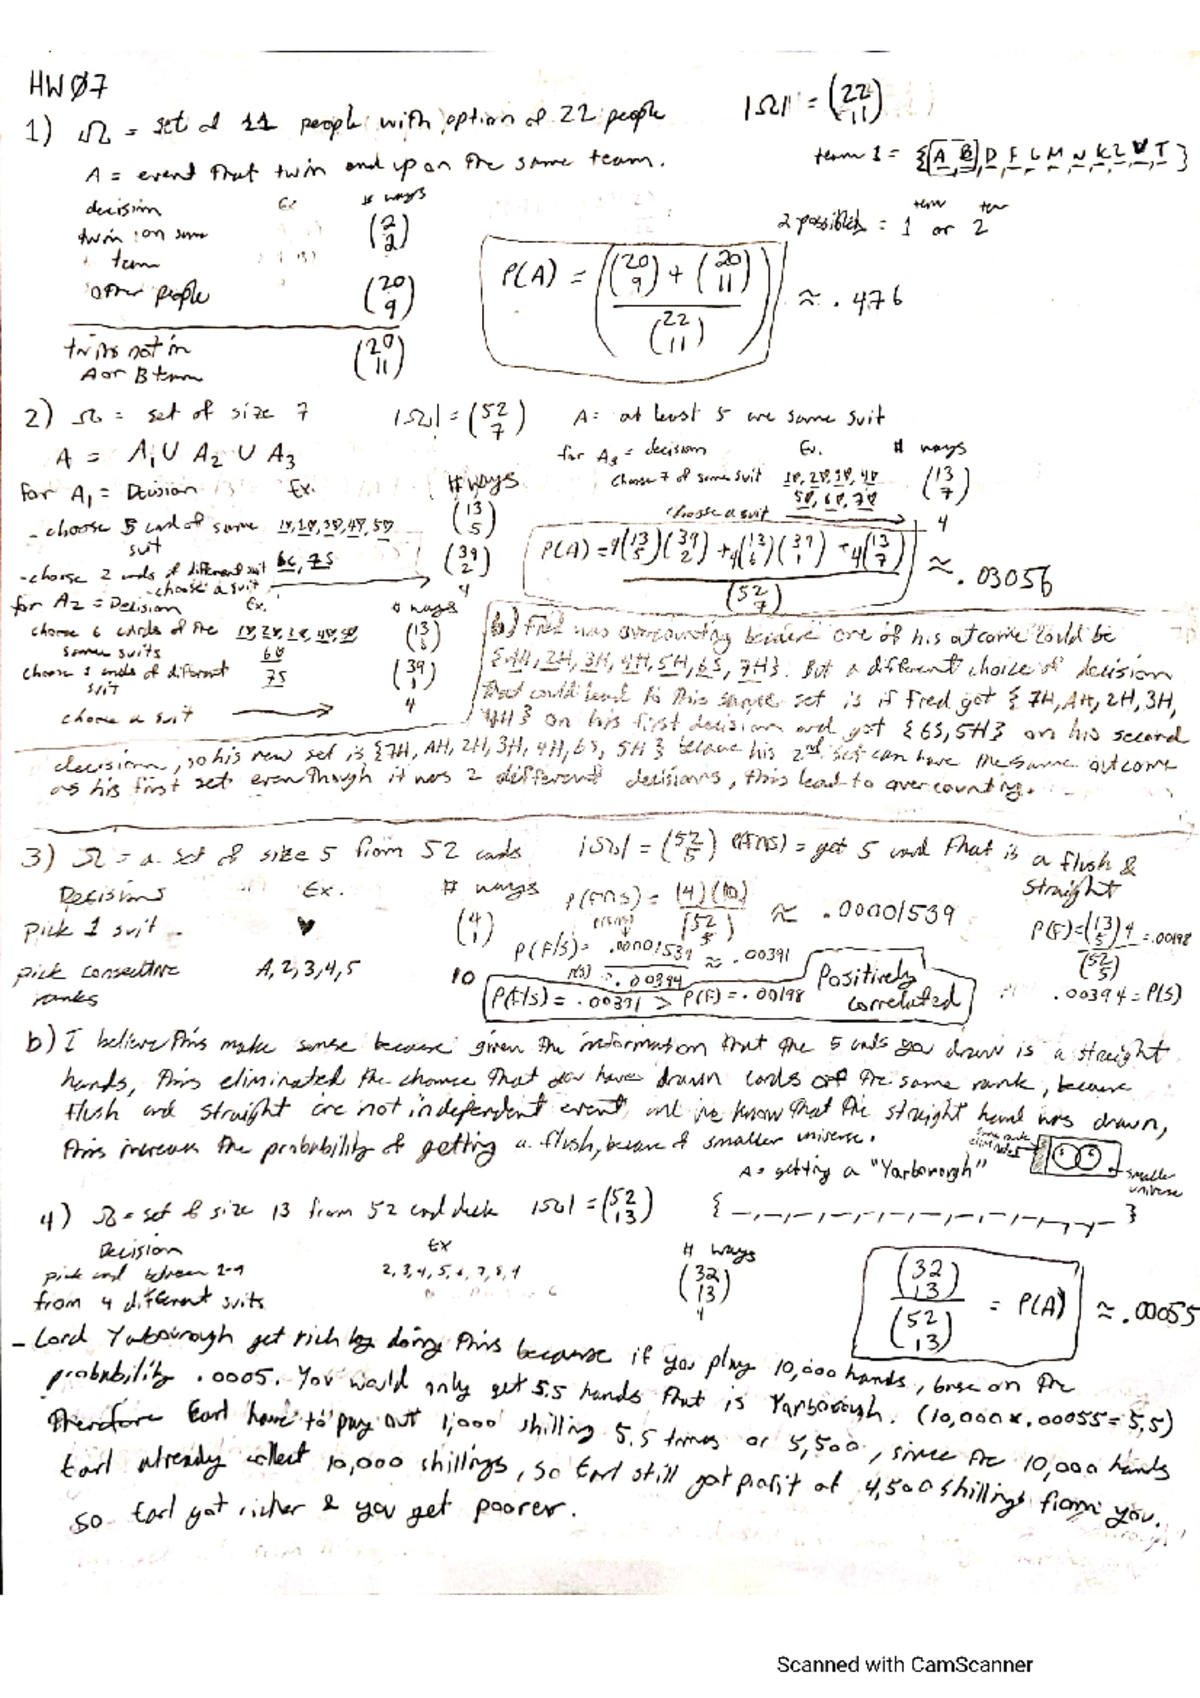 HW 07
1) Ω = set of 11 people with option of 22 people |Ω| = (22 11)
team 1 = {A, B, D, F, G, M, N, K, L, V, T}
A = event that twin end up on the same team.
decision Ex # ways
twin on same team (2 2)
2 possibilities = 1 or 2
other people (20 9)
P(A) = ((20 9) + (20 11)) / (22 11) ≈ .476
twins not in A or B team (20 11)
2) Ω = set of size 7 |Ω| = (52 7) A = at least 5 are same suit
A = A₁ ∪ A₂ ∪ A₃
for A₁ = Decision Ex. # ways
- choose 5 card of same suit 1♥, 2♥, 3♥, 4♥, 5♥ (13 5)
- choose 2 cards of different suit 6C, 7S (39 2)
- choose a suit → 4
for A₂ = Decision Ex. # ways
choose 6 cards of the same suits (13 6)
6♥
choose 1 cards of different suit 7S (39 1)
choose a suit → 4
for A₃ = decision Ex. # ways
choose 7 of same suit 1♥, 2♥, 3♥, 4♥ (13 7)
5♥, 6♥, 7♥
choose a suit → 4
P(A) = (4(13 5)(39 2) + 4(13 6)(39 1) + 4(13 7)) / (52 7) ≈ .03056
b) Fred was overcounting because one of his outcome could be
{AH, 2H, 3H, 4H, 5H, 6S, 7H}. But a different choice of decision
that could lead to this same set is if Fred got {7H, AH, 2H, 3H,
4H} on his first decision and got {6S, 5H} on his second
decision, so his new set is {7H, AH, 2H, 3H, 4H, 6S, 5H} because his 2nd set can have the same outcome
as his first set even though it was 2 different decisions, this lead to overcounting.
3) Ω = a set of size 5 from 52 cards |Ω| = (52 5) P(F∩S) = get 5 card that is a flush & straight
Decisions Ex. # ways
pick 1 suit ♥ (4 1)
pick consecutive ranks A, 2, 3, 4, 5 10
P(F∩S) = (4)(10) / (52 5) ≈ .00001539
P(F/S) = P(F∩S) → .00001539 / P(S) → .00394 ≈ .00391
P(F) = (13 5)4 / (52 5) = .00198
.00394 = P(S)
P(F/S) = .00391 > P(F) = .00198 Positively correlated
b) I believe this make sense because given the information that the 5 cards you draw is a straight
hands, this eliminated the chance that you have drawn cards of the same rank, because
flush and straight are not independent event, and we know that the straight hand was drawn,
this increases the probability of getting a flush, because of smaller universe.
smaller universe
A = getting a "Yarborough"
4) Ω = set of size 13 from 52 card deck |Ω| = (52 13) { _, _, _, _, _, _, _, _, _, _, _, _, _ }
Decision Ex # ways
pick card between 2-9 2, 3, 4, 5, 6, 7, 8, 9 (32 13)
from 4 different suits 4
(32 13) / (52 13) = P(A) ≈ .00055
- Lord Yarborough get rich by doing this because if you play 10,000 hands, base on the
probability .0005. You would only get 5.5 hands that is Yarborough. (10,000 x .00055 = 5.5)
Therefore Earl have to pay out 1,000 shilling 5.5 times or 5,500, since the 10,000 hands
Earl already collect 10,000 shillings, so Earl still got profit of 4,500 shillings from you.
so Earl got richer & you get poorer.
Scanned with CamScanner